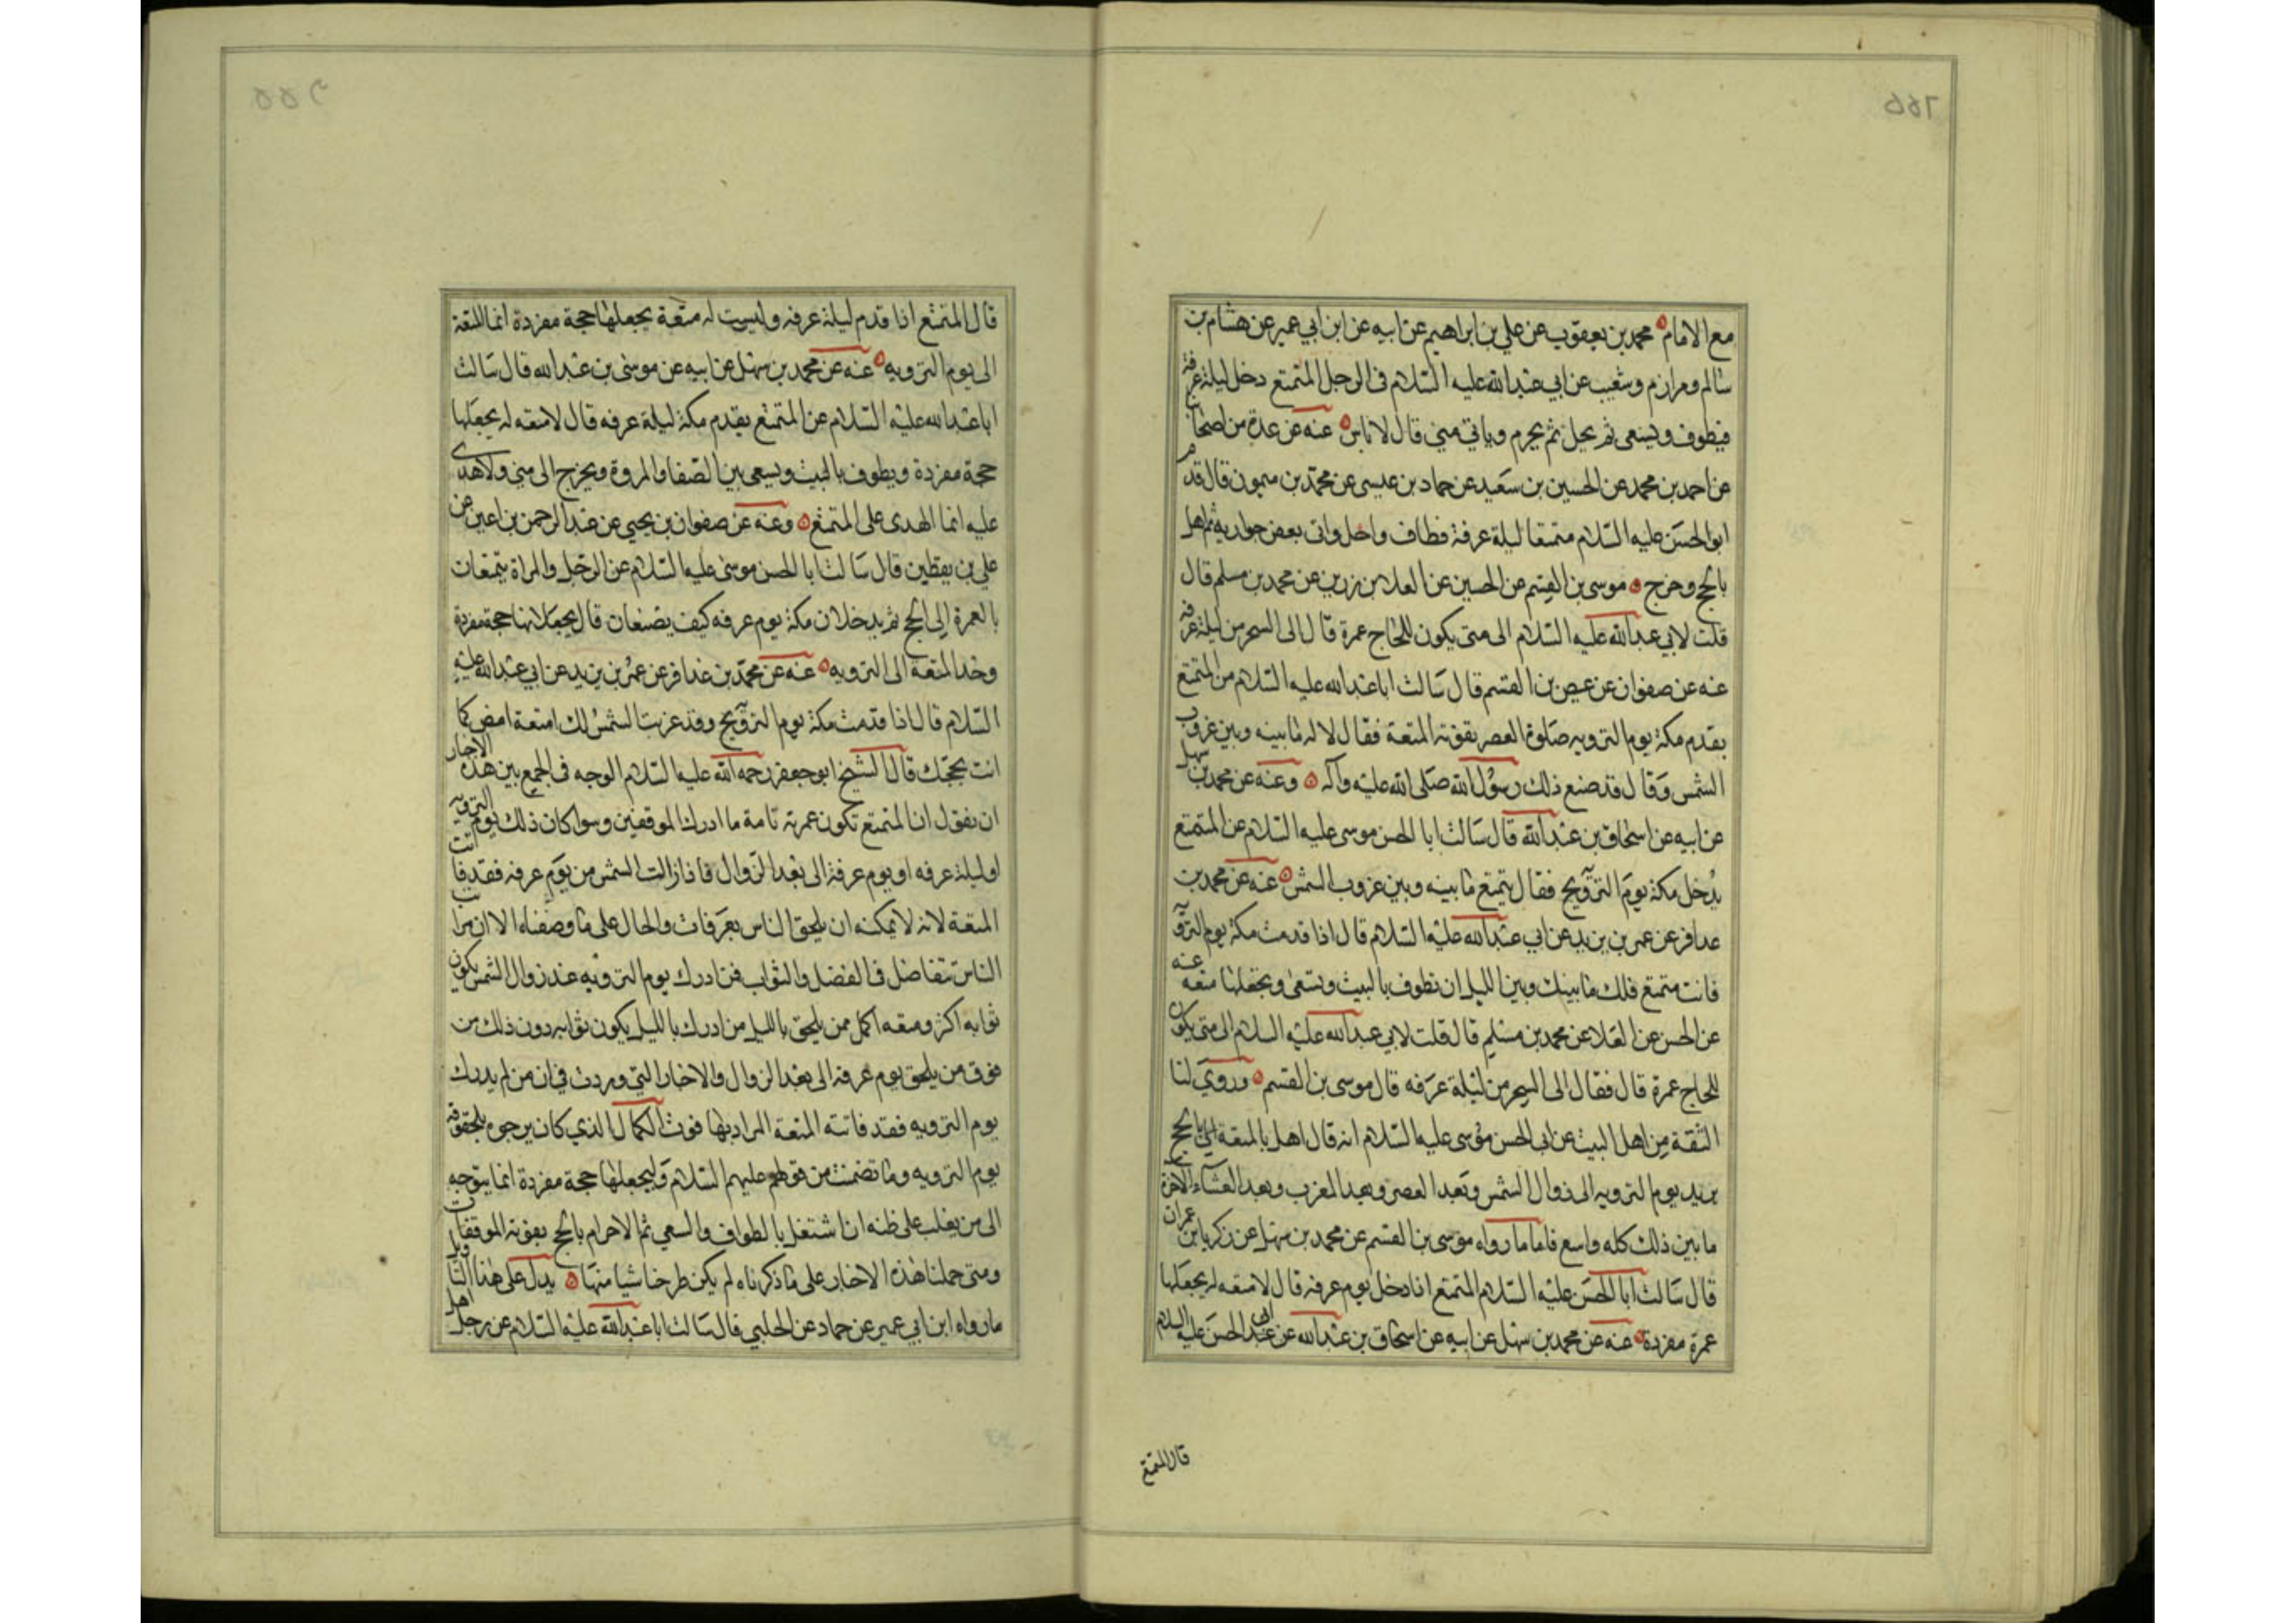 مع الامام محمد بن يعقوب عن علي بن ابراهيم عن ابيه عن ابن ابي عمير عن هشام بن
سالم ومرازم وشعيب عن ابي عبد الله عليه السلام في الرجل المتمتع دخل ليلة عرفة
فيطوف ويسعى ثم يحل ثم يحرم وياتي منى قال لا باس عنه عن عدة من اصحابنا
عن احمد بن محمد عن الحسين بن سعيد عن حماد بن عيسى عن محمد بن ميمون قال قدم
ابو الحسن عليه السلام متمتعا ليلة عرفة فطاف واحل واتى بعض جواريه ثم اهل
بالحج وخرج موسى بن القسم عن الحسين عن العلا بن زرين عن محمد بن مسلم قال
قلت لابي عبد الله عليه السلام الى متى يكون للحاج عمرة قال الى السحر من ليلة عرفة
عنه عن صفوان عن عيص بن القسم قال سالت ابا عبد الله عليه السلام من المتمتع
يقدم مكة يوم الترويه صلوة العصر يفوته المتعة فقال لا له ما بينه وبين غروب
الشمس وقال قد صنع ذلك رسول الله صلى الله عليه وآله وعنه عن محمد بن سهل
عن ابيه عن اسحاق بن عبد الله قال سالت ابا الحسن موسى عليه السلام عن المتمتع
يدخل مكة يوم التروية فقال يتمتع ما بينه وبين غروب الشمس عنه عن محمد بن
عذافر عن عمر بن يزيد عن ابي عبد الله عليه السلام قال اذا قدمت مكة يوم التروية
فانت متمتع فلك ما بينك وبين الليل ان تطوف بالبيت وتسعى وتجعلها متعه عنه
عن الحسن عن العلا عن محمد بن مسلم قال قلت لابي عبد الله عليه السلام الى متى يكون
للحاج عمرة قال فقال الى السحر من ليلة عرفه قال موسى بن القسم وروى لنا
الثقة من اهل البيت عن ابى الحسن موسى عليه السلام انه قال اهل بالمتعة الى الحج
يريد يوم الترويه الى زوال الشمس وبعد العصر وبعد المغرب وبعد العشاء الاخرة
ما بين ذلك كله واسع فاما ما رواه موسى بن القسم عن محمد بن سهل عن زكريا بن عمران
قال سالت ابا الحسن عليه السلام المتمتع اذا دخل يوم عرفه قال لا متعه له يجعلها
عمرة مفردة عنه عن محمد بن سهل عن ابيه عن اسحاق بن عبد الله عن ابى الحسن عليه السلام
قال المتمتع
قال المتمتع اذا قدم ليلة عرفه وليست له متعة يجعلها حجة مفردة انما المتعة
الى يوم الترويه عنه عن محمد بن سهل عن ابيه عن موسى بن عبد الله قال سالت
ابا عبد الله عليه السلام عن المتمتع يقدم مكة ليلة عرفه قال لا متعه له يجعلها
حجة مفردة ويطوف بالبيت ويسعى بين الصفا والمروة ويخرج الى منى ولا هدى
عليه انما الهدى على المتمتع وعنه عن صفوان بن يحيى عن عبد الرحمن بن اعين عن
علي بن يقطين قال سالت ابا الحسن موسى عليه السلام عن الرجل والمراة يتمتعان
بالعمرة الى الحج ثم يدخلان مكة يوم عرفه كيف يصنعان قال يجعلانها حجة مفردة
وحد المتعة الى الترويه عنه عن محمد بن عذافر عن عمر بن يزيد عن ابي عبد الله عليه
السلام قال اذا قدمت مكة يوم التروية وقد غربت الشمس لك امتعة امض كما
انت بحجتك قال الشيخ ابو جعفر رحمه الله عليه السلام الوجه في الجمع بين هذه الاخبار
ان يقول ان المتمتع تكون عمرته تامة ما ادرك الموقفين وسوا كان ذلك يوم التروية
او ليلة عرفه او يوم عرفة الى بعد الزوال فاذا زالت الشمس من يوم عرفه فقد فاتت
المتعة لانه لا يمكنه ان يلحق الناس بعرفات والحال على ما وصفناه الا ان مراتب
الناس تتفاضل في الفضل والثواب فمن ادرك يوم الترويه عند زوال الشمس يكون
ثوابه اكثر ومتعه اكمل ممن يلحق بالليل من ادرك بالليل يكون ثوابه دون ذلك من
فوق من يلحق يوم عرفه الى بعد الزوال والاخبار التي وردت في ان من لم يدرك
يوم الترويه فقد فاتته المتعة المراد بها فوت الكمال الذي كان يرجوه بلحوقه
يوم الترويه وما تضمنت من قولهم عليهم السلام وليجعلها حجة مفردة انما يتوجه
الى من يغلب على ظنه ان اشتغل بالطواف والسعي ثم الاحرام بالحج يفوته الموقفان
ومتى حملنا هذه الاخبار على ما ذكرناه لم يكن طرحنا شيا منها يدل على هذا التاويل
ما رواه ابن ابي عمير عن حماد عن الحلبي قال سالت ابا عبد الله عليه السلام عن رجل اهل